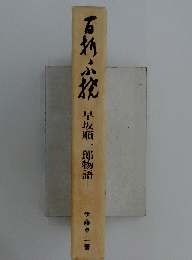 百折不撓
早坂順一郎物語